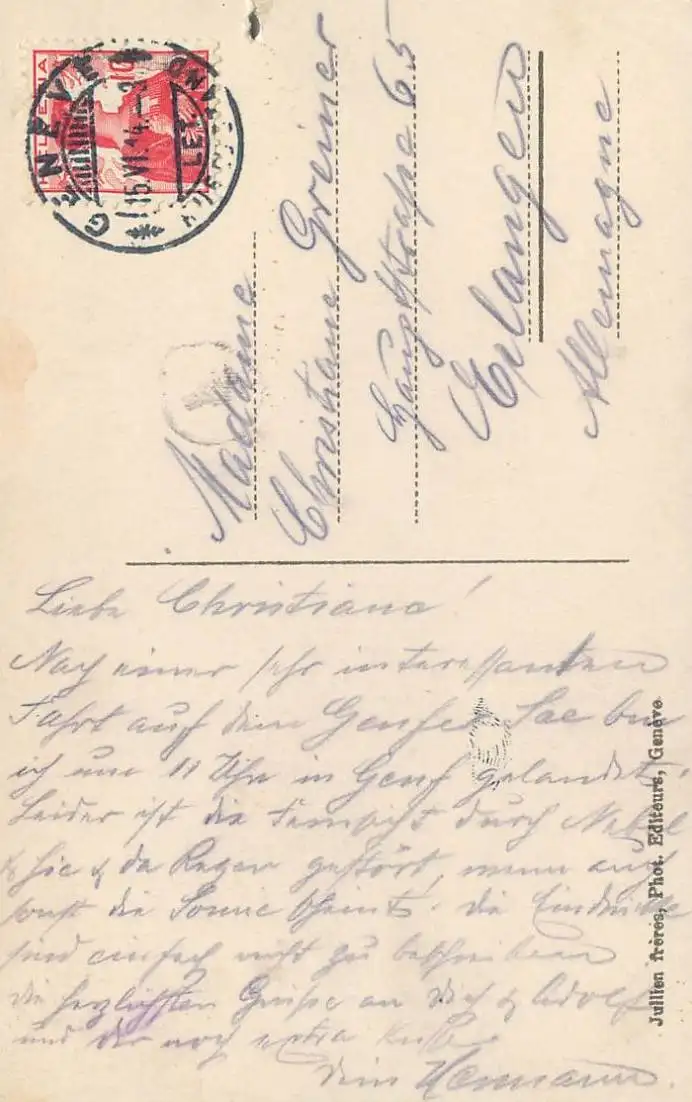 HELVETIA
10
GENÈVE
15.VI.14.-9
LET
Madame
Christiane Greiner
Hauptstrasse 65
Erlangen
Allemagne
Liebe Christiane!
Nach einer sehr interessanten
Fahrt auf dem Genfer See bin
ich um 11 Uhr in Genf gelandet.
Leider ist die Fernsicht durch Nebel
& hie & da Regen gestört, wenn auch
sonst die Sonne scheint. Die Eindrücke
sind einfach nicht zu beschreiben
die herzlichsten Grüsse an Dich & Adolf
und Dir noch extra Küsse
Dein Hermann.
Jullien frères, Phot. Editeurs, Genève